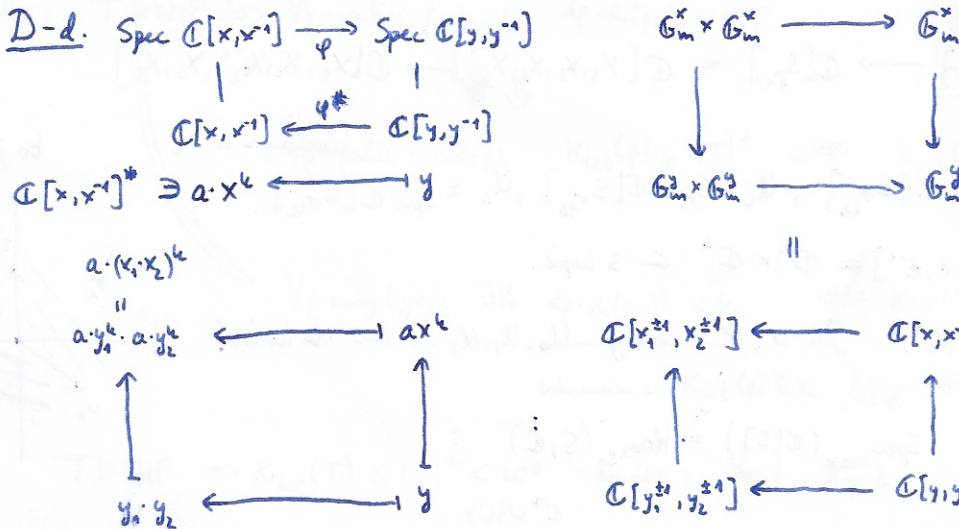 D-d. Spec ℂ[x,x⁻¹] →φ Spec ℂ[y,y⁻¹]
ℂ[x,x⁻¹] ←φ* ℂ[y,y⁻¹]
ℂ[x,x⁻¹]* ∋ a·xᵏ ⟵ y
a·(x₁·x₂)ᵏ
=
a·y₁ᵏ·a·y₂ᵏ ⟵ axᵏ
y₁·y₂ ⟵ y
𝔾ₘˣ × 𝔾ₘˣ ⟶ 𝔾ₘˣ
𝔾ₘʸ × 𝔾ₘʸ ⟶ 𝔾ₘʸ
=
ℂ[x₁^±1,x₂^±1] ⟵ ℂ[x,x
ℂ[y₁^±1,y₂^±1] ⟵ ℂ[y,y